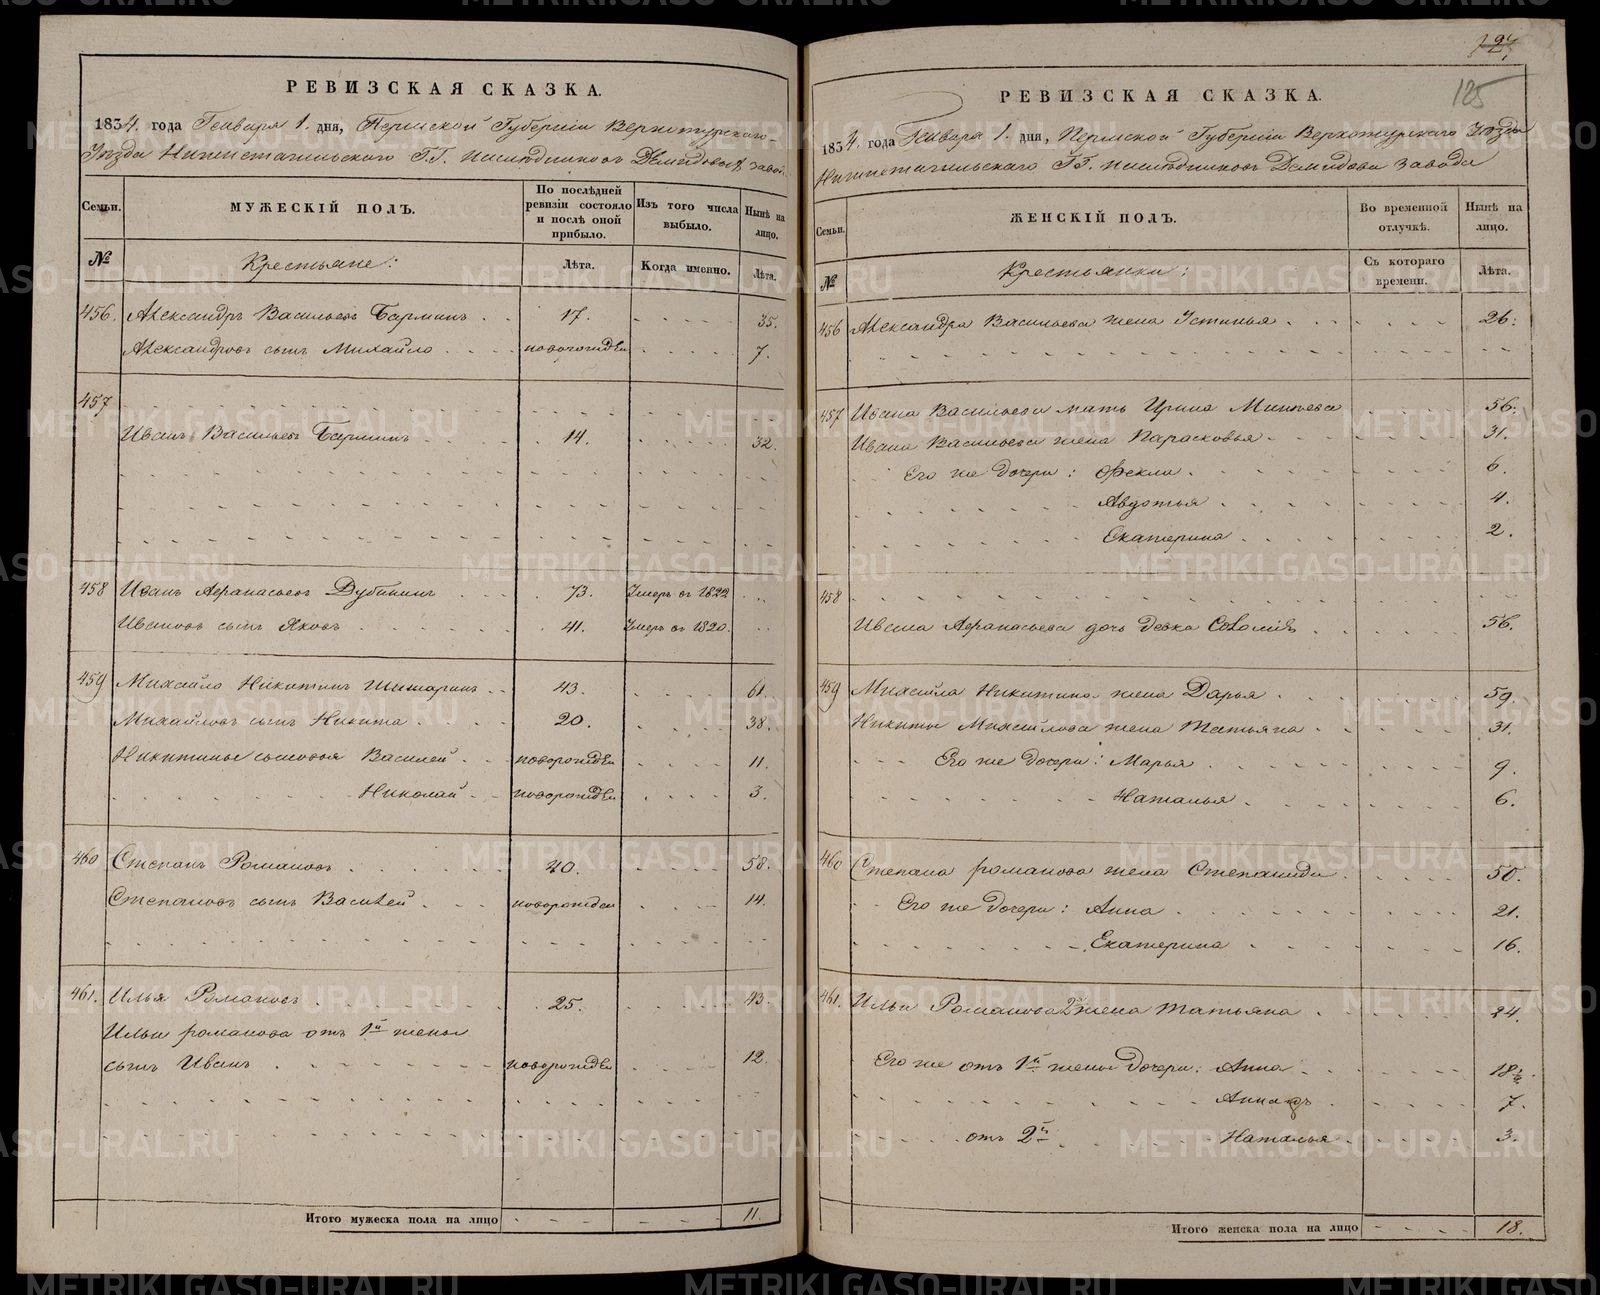 РЕВИЗСКАЯ СКАЗКА.
1834. года Генваря 1. дня, Пермской Губернiи Верхотурскаго
Уѣзда Нижнетагильскаго Г.Г. Наслѣдниковъ Демидовых завод
Семьи.
МУЖЕСКІЙ ПОЛЪ.
По послѣдней ревизіи состояло и послѣ оной прибыло.
Изъ того числа выбыло.
Нынѣ на лицо.
№
Крестьяне:
Лѣта.
Когда именно.
Лѣта.
456. Александръ Васильевъ Барминъ 17. 35.
Александровъ сынъ Михайло новорожден 7.
457
Иванъ Васильевъ Барминъ 14. 32.
458 Иванъ Афанасьевъ Дубининъ 73. Умеръ въ 1822
Ивановъ сынъ Яковъ 41. Умеръ въ 1820.
459 Михайло Никитинъ 43. 61.
Михайловъ сынъ Никита 20. 38.
Никитины сыновья Василей новорожден 11.
Николай новорожден 3.
460 Степанъ Романовъ 40. 58.
Степановъ сынъ Василей новорожден 14.
461. Илья Романовъ 25. 43.
Ильи романова отъ 1й жены
сынъ Иванъ новорожден 12.
Итого мужеска пола на лицо 11.
124
125
РЕВИЗСКАЯ СКАЗКА.
1834. года Генваря 1. дня, Пермской Губернiи Верхотурскаго Уѣзда
Нижнетагильскаго ГГ. Наслѣдниковъ Демидова завода
Семьи.
ЖЕНСКІЙ ПОЛЪ.
Во временной отлучкѣ.
Нынѣ на лицо.
№
Крестьянки:
Съ котораго времени.
Лѣта.
456 Александра Васильева жена Устинья 26.
457 Ивана Васильева мать Ирина 56.
Ивана Васильева жена Парасковья 31.
Его же дочери: Фекла 6.
Авдотья 4.
Екатерина 2.
458
Ивана Афанасьева дочь девка Соломія 56.
459 Михайла Никитина жена Дарья 59.
Никиты Михайлова жена Татьяна 31.
Его же дочери: Марья 9.
Наталья 6.
460 Степана романова жена Степанида 50.
Его же дочери: Анна 21.
Екатерина 16.
461. Ильи Романова 2я жена Татьяна 24.
Его же отъ 1й жены дочери: Анна 18½.
Анна 7.
отъ 2й Наталья 3.
Итого женска пола на лицо 18.
METRIKI.GASO-URAL.RU